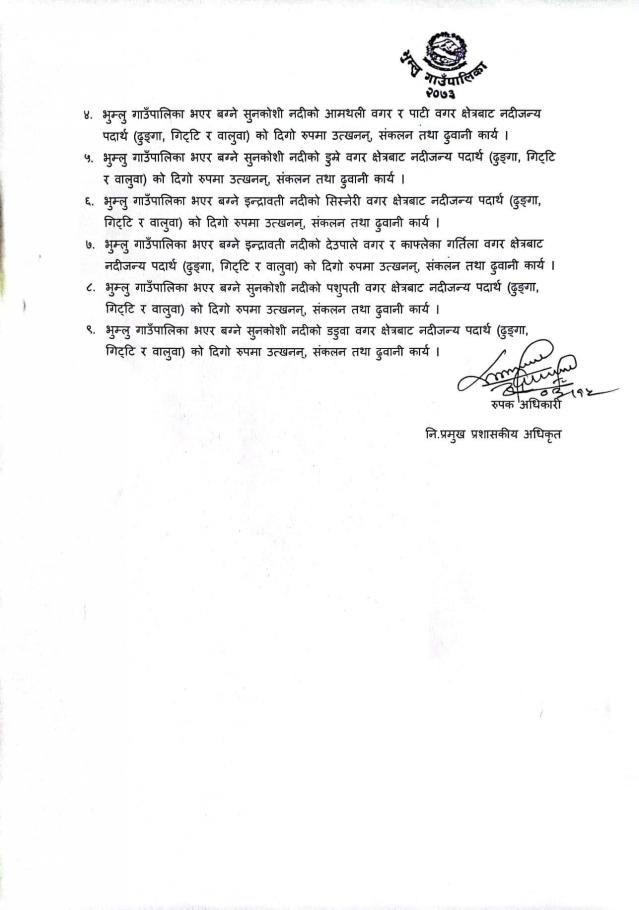 भुम्लु गाउँपालिका
२०७३
४. भुम्लु गाउँपालिका भएर बग्ने सुनकोशी नदीको आमथली वगर र पाटी वगर क्षेत्रबाट नदीजन्य
पदार्थ (ढुङ्गा, गिट्टि र वालुवा) को दिगो रुपमा उत्खनन्, संकलन तथा ढुवानी कार्य ।
५. भुम्लु गाउँपालिका भएर बग्ने सुनकोशी नदीको डुमे वगर क्षेत्रबाट नदीजन्य पदार्थ (ढुङ्गा, गिट्टि
र वालुवा) को दिगो रुपमा उत्खनन्, संकलन तथा ढुवानी कार्य ।
६. भुम्लु गाउँपालिका भएर बग्ने इन्द्रावती नदीको सिस्नेरी वगर क्षेत्रबाट नदीजन्य पदार्थ (ढुङ्गा,
गिट्टि र वालुवा) को दिगो रुपमा उत्खनन्, संकलन तथा ढुवानी कार्य ।
७. भुम्लु गाउँपालिका भएर बग्ने इन्द्रावती नदीको देउपाले वगर र काफ्लेका गर्तिला वगर क्षेत्रबाट
नदीजन्य पदार्थ (ढुङ्गा, गिट्टि र वालुवा) को दिगो रुपमा उत्खनन्, संकलन तथा ढुवानी कार्य ।
८. भुम्लु गाउँपालिका भएर बग्ने सुनकोशी नदीको पशुपती वगर क्षेत्रबाट नदीजन्य पदार्थ (ढुङ्गा,
गिट्टि र वालुवा) को दिगो रुपमा उत्खनन्, संकलन तथा ढुवानी कार्य ।
९. भुम्लु गाउँपालिका भएर बग्ने सुनकोशी नदीको डडुवा वगर क्षेत्रबाट नदीजन्य पदार्थ (ढुङ्गा,
गिट्टि र वालुवा) को दिगो रुपमा उत्खनन्, संकलन तथा ढुवानी कार्य ।
रुपक अधिकारी
नि.प्रमुख प्रशासकीय अधिकृत